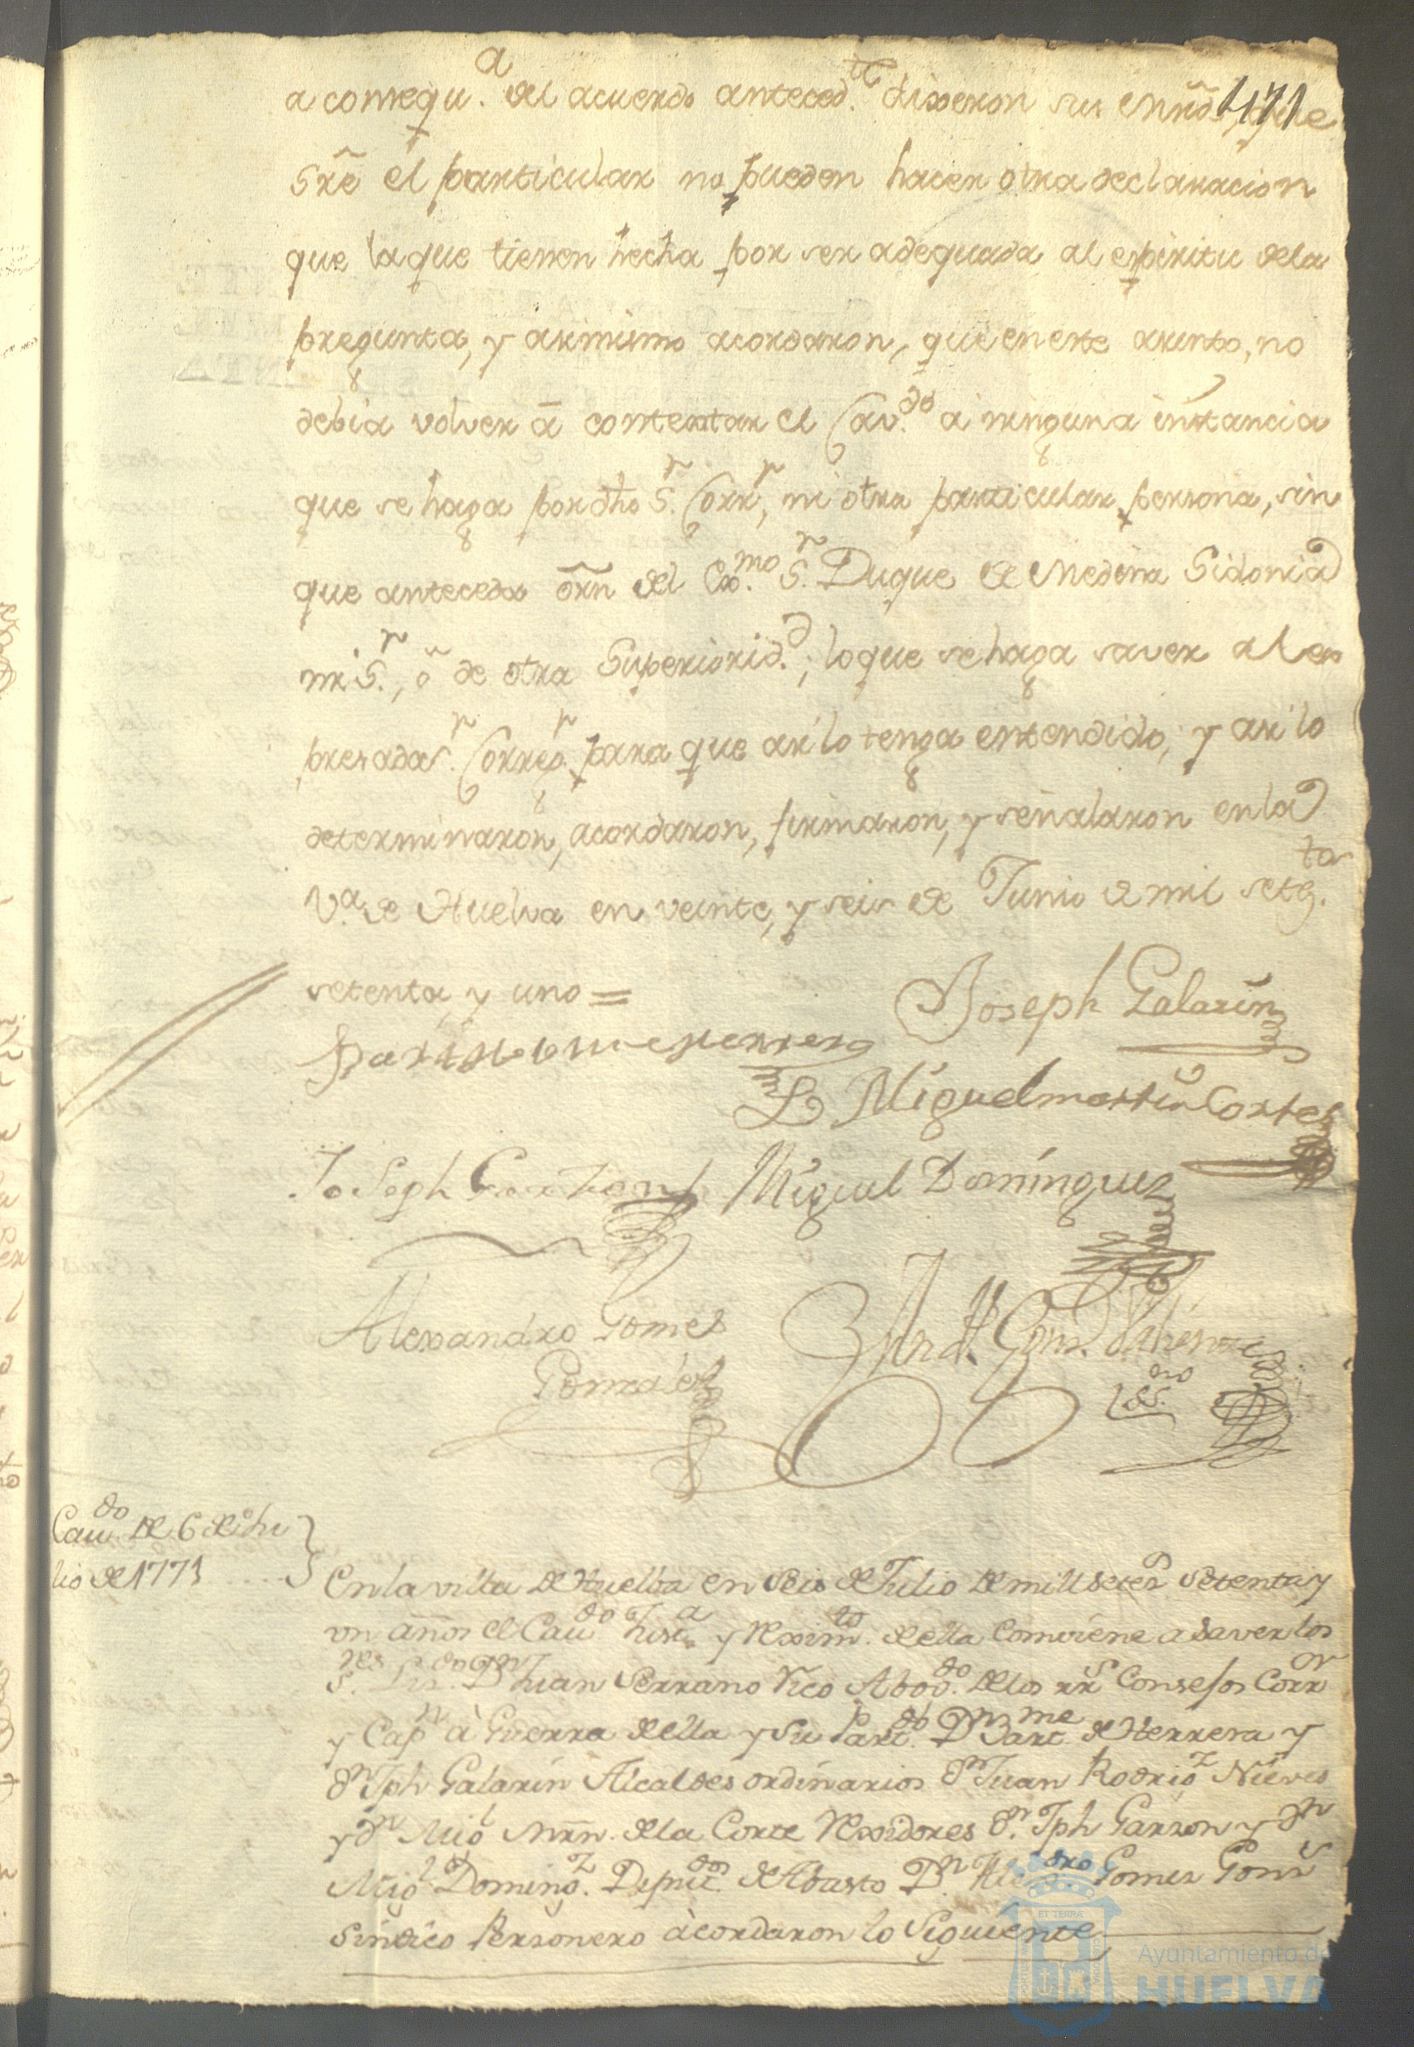 471
a consequ.ª del acuerdo anteced.te dixeron sus mrds, que
sre el particular no pueden hacer otra declaracion
que la que tienen hecha por ser adequada al espiritu dela
pregunta, y asimismo acordaron, que en este asunto, no
debia volver â contextar el Cav.do a ninguna instancia
que se haga por dho S.r Corr.r, ni otra particular persona, sin
que anteceda orn del Exmo. S.r Duque de Medina Sidonia
mi S.r, ô de otra Superiorid.d; lo que se haga saver al es
presada S.r Corres.r para que asi lo tenga entendido; y asi lo
determinaron, acordaron, firmaron, y señalaron en la
V.a de Huelva en veinte, y seis de Junio de mil setez.tos
setenta y uno =
Joseph Galarin
Bartolome Herrera
Miguel Martin Cortes
Joseph Garzon
Miguel Dominguez
Alexandro Gomes
Gonzales
Ess.no
Cau.do de 6 de Ju
lio de 1771
En la villa de Huelba en seis de Julio de mill setez.s setenta y
un años el Cau.do Just.a y Reximto. de ella conviene a saver los
S.res Liz.do Dn Juan Serrano Vico Abog.do de los rr.s Consejos Corr.or
y Cap.n â Guerra de ella y su Part.do Dn Bart.me de Herrera y
dn Jph Galarin Alcaldes ordinarios dn Juan Rodrig.z Nieves
y dn Mig.l Mrn. de la Corte Rexidores dn. Jph Garzon y dn
Mig.l Doming.z Diput.dos de Abasto Dn Alex.dro Gomez Gonz.s
Sindico Personero acordaron lo siguiente
ET TERRA
Ayuntamiento de
HUELVA